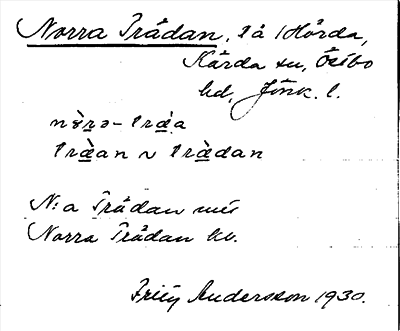 Norra Trådan, lå Hörda,
Kärda sn, Östbo
hd, Jönk. l.
nɤ̀rə-træ̀a
træ̀an ~ træ̀dan
N:a Trådan
Norra Trådan
Andersson 1930.